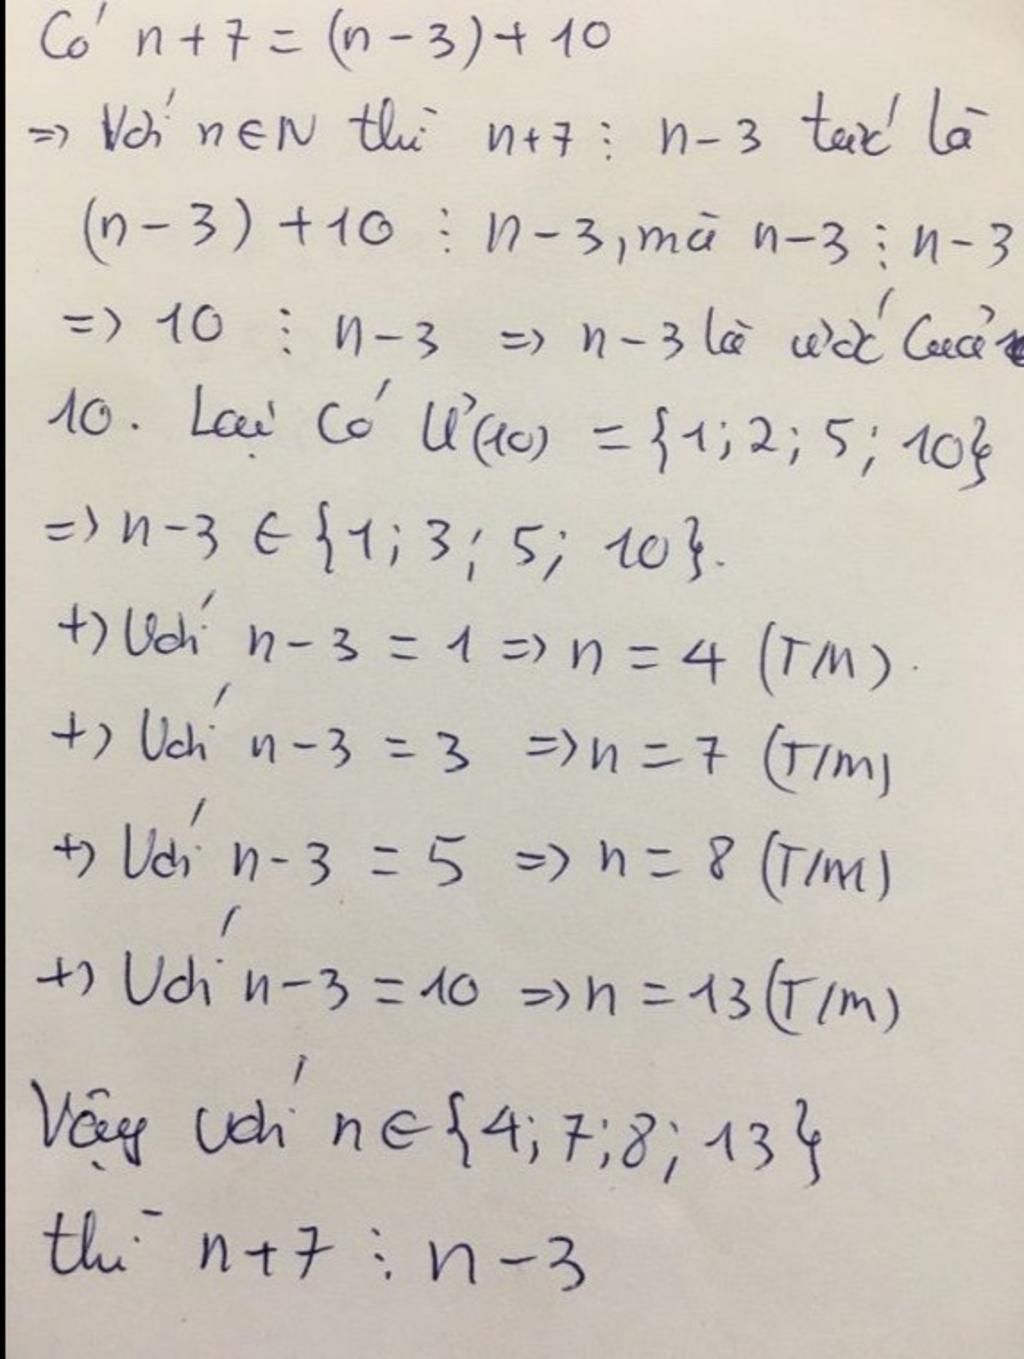 Có n + 7 = (n - 3) + 10
=> Với n ∈ N thì n+7 ⋮ n-3 tức là
(n - 3) + 10 ⋮ n-3, mà n-3 ⋮ n-3
=> 10 ⋮ n-3 => n-3 là ước của
10. Lại có Ư(10) = {1; 2; 5; 10}
=> n-3 ∈ {1; 3; 5; 10}.
+) Với n - 3 = 1 => n = 4 (T/M).
+) Với n - 3 = 3 => n = 7 (T/m)
+) Với n - 3 = 5 => n = 8 (T/m)
+) Với n - 3 = 10 => n = 13 (T/m)
Vậy với n ∈ {4; 7; 8; 13}
thì n+7 ⋮ n-3